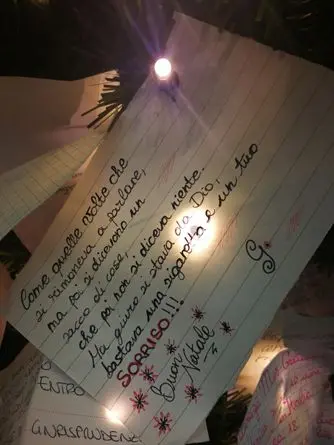 Come quelle volte che
si rimaneva a parlare,
ma poi si dicevano un
sacco di cose,
che poi non si diceva niente.
Ma giuro si stava da Dio,
bastava una sigaretta e un tuo
SORRISO!!!
G.
Buon
Natale
ENTRO
GIURISPRUDENZ